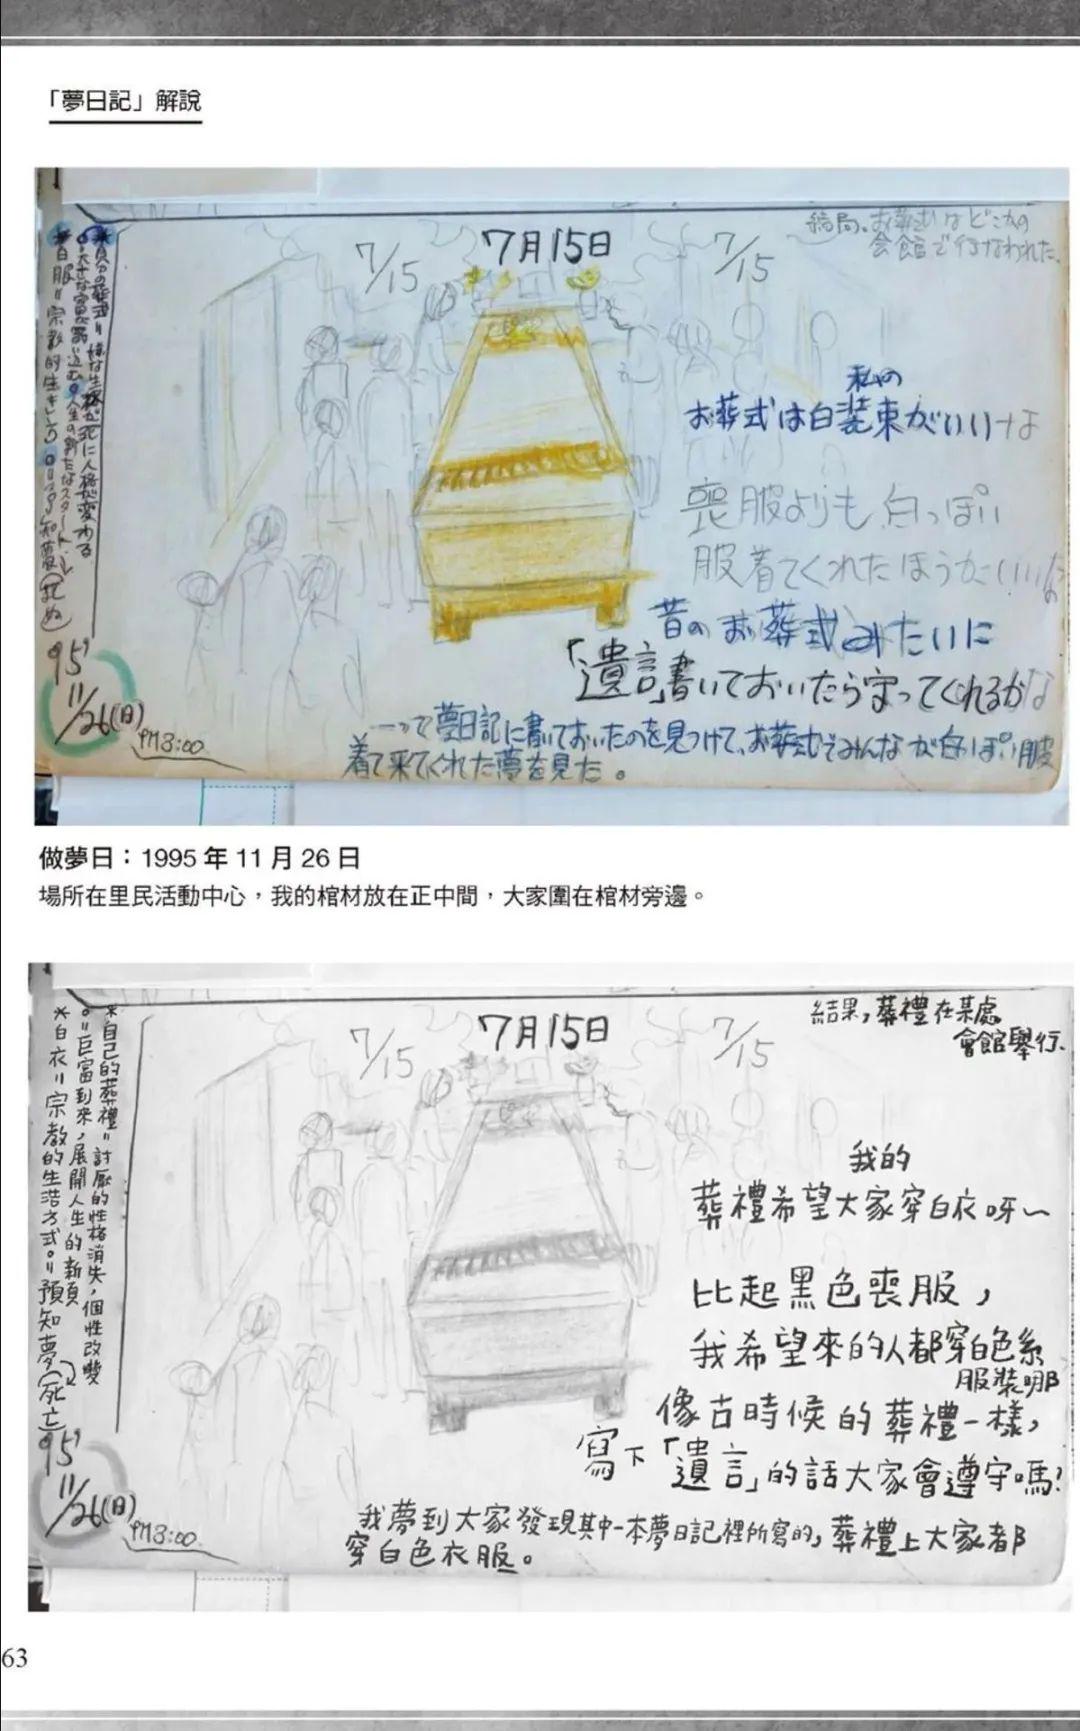 「夢日記」解說
7/15
7月15日
7/15
結局、お葬式はどこかの
会館で行なわれた。
私の
お葬式は白装束がいいな
喪服よりも白っぽい
服着てくれたほうがいいな
昔のお葬式みたいに
「遺言」書いておいたら守ってくれるかな
――って夢日記に書いておいたのを見つけて、お葬式でみんなが白っぽい服
着て来てくれた夢を見た。
95'
11/26(日)
PM3:00
做夢日：1995 年 11 月 26 日
場所在里民活動中心，我的棺材放在正中間，大家圍在棺材旁邊。
7/15
7月15日
7/15
結果，葬禮在某處
會館舉行、
＊自己的葬禮＝討厭的性格消失，個性改變
。＝巨富到來，展開人生的新頁
＊白衣＝宗教的生活方式。＝預知夢(死亡)
我的
葬禮希望大家穿白衣呀～
比起黑色喪服，
我希望來的人都穿白色系
服裝哪
像古時候的葬禮一樣，
寫下「遺言」的話大家會遵守嗎？
我夢到大家發現其中一本夢日記裡所寫的，葬禮上大家都
穿白色衣服。
95'
11/26(日)
PM3:00
63